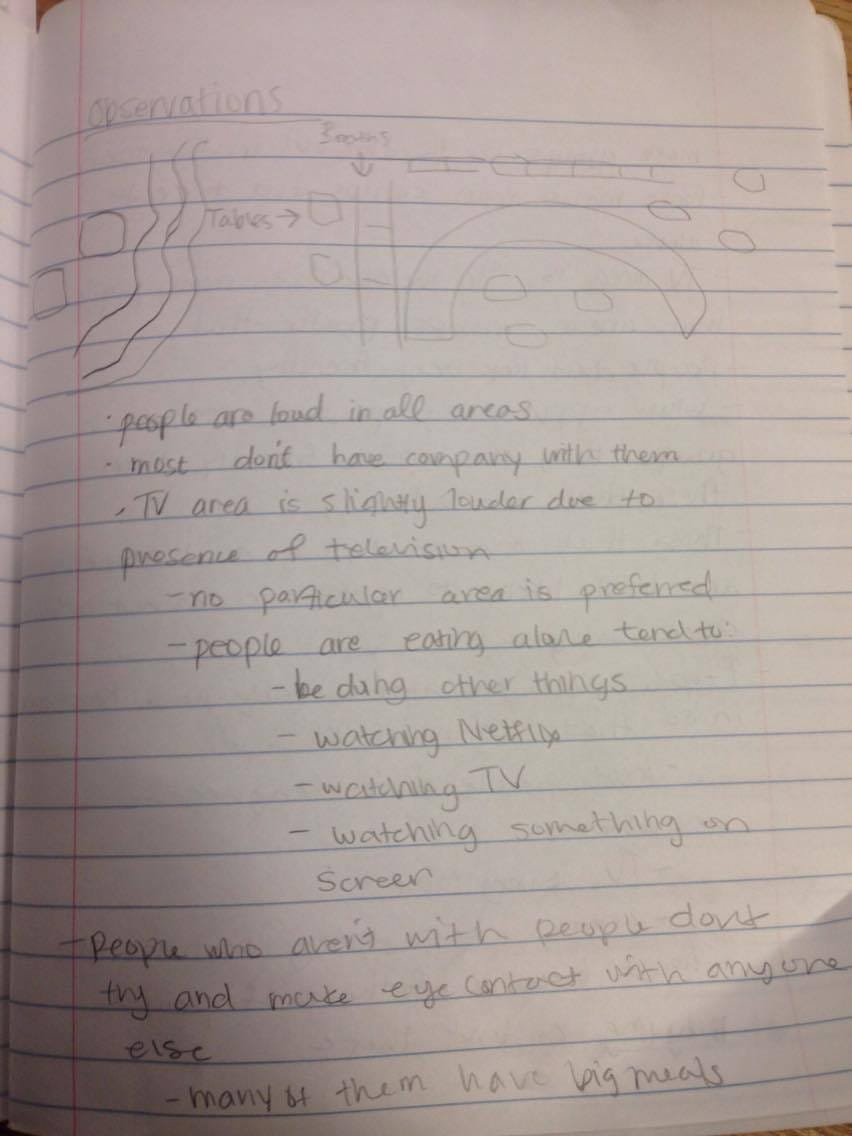 Observations
Booths
Tables →
· people are loud in all areas
· most don't have company with them
· TV area is slightly louder due to
presence of television
- no particular area is preferred
- people are eating alone tend to:
- be doing other things
- watching Netflix
- watching TV
- watching something on
screen
- people who aren't with people dont
try and make eye contact with anyone
else
- many of them have big meals